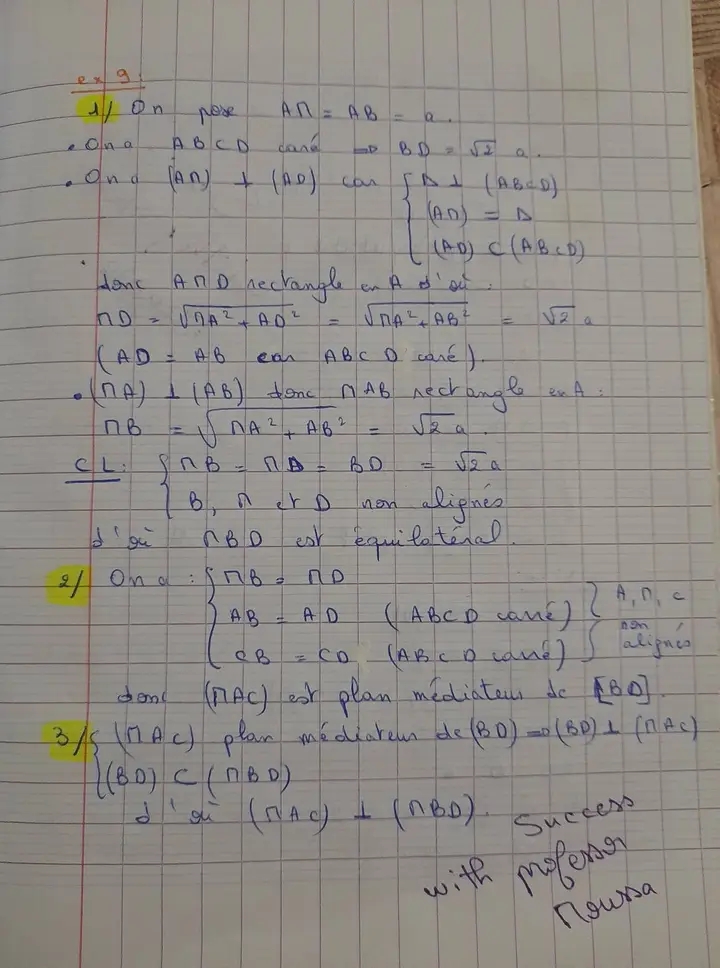 ex 9:
1/ On pose AM = AB = a.
. On a ABCD carré ⇒ BD = √2 a.
. On a (AM) ⊥ (AD) car { Δ ⊥ (ABCD)
(AM) = Δ
(AD) ⊂ (ABCD)
donc AMD rectangle en A d'où :
MD = √MA² + AD² = √MA² + AB² = √2 a
(AD = AB car ABCD carré).
. (MA) ⊥ (AB) donc MAB rectangle en A :
MB = √MA² + AB² = √2 a.
CL: { MB = MD = BD = √2 a
B, M et D non alignés
d'où MBD est équilatéral.
2/ On a : { MB = MD
AB = AD (ABCD carré) } A, M, C
CB = CD (ABCD carré) } non alignés
donc (MAC) est plan médiateur de [BD].
3/ { (MAC) plan médiateur de (BD) ⇒ (BD) ⊥ (MAC)
(BD) ⊂ (MBD)
d'où (MAC) ⊥ (MBD).
Success
with professor
Moussa